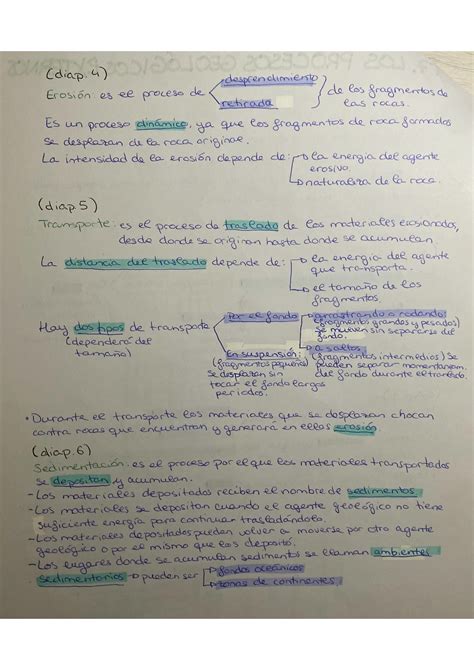 (diap. 4)
Erosión: es el proceso de desprendimiento retirada de los fragmentos de las rocas.
Es un proceso dinámico, ya que los fragmentos de roca formados
se desplazan de la roca original.
La intensidad de la erosión depende de: la energía del agente
erosivo.
naturaleza de la roca.
(diap. 5)
Transporte: es el proceso de traslado de los materiales erosionados,
desde donde se originan hasta donde se acumulan.
La distancia del traslado depende de: la energía del agente
que transporta.
el tamaño de los
fragmentos.
Hay dos tipos de transporte
(dependerá del
tamaño)
Por el fondo
arrastrando o rodando:
(fragmento grandes y pesados)
se mueven sin separarse del
fondo.
a saltos
(fragmentos intermedios) Se
pueden separar momentaneam.
del fondo durante el
En suspensión:
(fragmentos pequeños)
Se desplazan sin
tocar el fondo largos
periodos.
• Durante el transporte los materiales que se desplazan chocan
contra rocas que encuentran y generará en ellos erosión.
(diap. 6)
Sedimentación: es el proceso por el que los materiales transportados
se depositan y acumulan.
- Los materiales depositados reciben el nombre de sedimentos.
- Los materiales se depositan cuando el agente geológico no tiene
suficiente energía para continuar trasladándola.
- Los materiales depositados pueden volver a moverse por otro agente
geológico o por el mismo que los depositó.
- Los lugares donde se acumulan sedimentos se llaman ambientes
sedimentarios pueden ser
fondos oceánicos
zonas de continentes